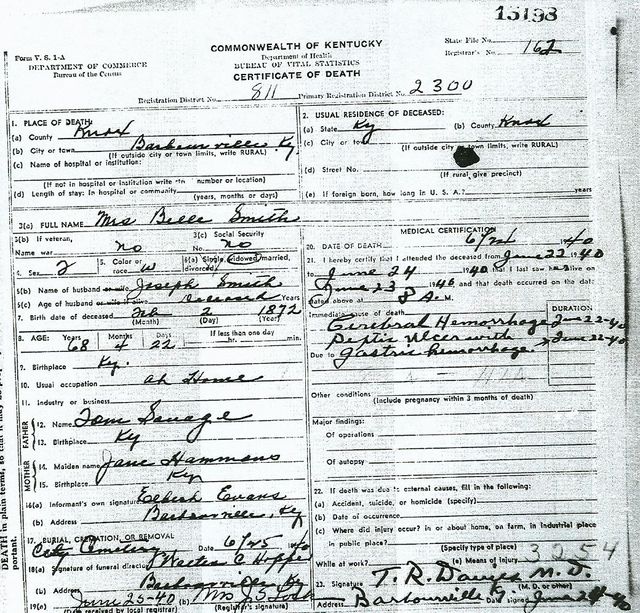 15198
COMMONWEALTH OF KENTUCKY
Department of Health
BUREAU OF VITAL STATISTICS
CERTIFICATE OF DEATH
Form V. S. 1-A
DEPARTMENT OF COMMERCE
Bureau of the Census
State File No.
Registrar's No. 162
Registration District No. 811 Primary Registration District No. 2300
1. PLACE OF DEATH:
(a) County Knox
(b) City or town Barbourville Ky.
(If outside city or town limits, write RURAL)
(c) Name of hospital or institution:
(If not in hospital or institution write number or location)
(d) Length of stay: In hospital or community
(years, months or days)
2. USUAL RESIDENCE OF DECEASED:
(a) State Ky (b) County Knox
(c) City or town
(If outside city or town limits, write RURAL)
(d) Street No.
(If rural give precinct)
(e) If foreign born, how long in U. S. A.? years
3(a) FULL NAME Mrs Belle Smith
3(b) If veteran, Name war no
3(c) Social Security No. no
4. Sex 5. Color or race W 6(a) Single, widowed, married, divorced
6(b) Name of husband or wife Joseph Smith
6(c) Age of husband or wife if alive Deceased Years
7. Birth date of deceased Feb 2 1872
(Month) (Day) (Year)
8. AGE: Years Months Days If less than one day
68 4 22 hr. min.
9. Birthplace Ky.
10. Usual occupation at Home
11. Industry or business
FATHER
12. Name Tom Savage
13. Birthplace Ky
MOTHER
14. Maiden name Jane Hammons
15. Birthplace Ky
16(a) Informant's own signature Evans
(b) Address Barbourville, Ky
17. BURIAL, CREMATION, OR REMOVAL
City Cemetery Date 6/25 1940
18(a) Signature of funeral director Walter
(b) Address Barbourville Ky
19(a) June 25-40 (b) Mrs J S
(Date received by local registrar) (Registrar's signature)
MEDICAL CERTIFICATION
20. DATE OF DEATH 6/24 1940
21. I hereby certify that I attended the deceased from June 22 1940
to June 24 1940 that I last saw her alive on
June 23 1940, and that death occurred on the date
stated above at 8 A. M.
Immediate cause of death DURATION
Cerebral Hemorrhage June 22-40
Peptic Ulcer with June 22-40
Due to gastric hemorrhage.
Other conditions
(Include pregnancy within 3 months of death)
Major findings:
Of operations
Of autopsy
22. If death was due to external causes, fill in the following:
(a) Accident, suicide, or homicide (specify)
(b) Date of occurrence
(c) Where did injury occur? in or about home, on farm, in industrial place
in public place?
(Specify type of place)
While at work? (e) Means of injury 3254
23. Signature T. R. Davies M. D.
(M. D. or other)
Address Barbourville Ky June 24-40
DEATH in plain terms, so that it may be
portant.